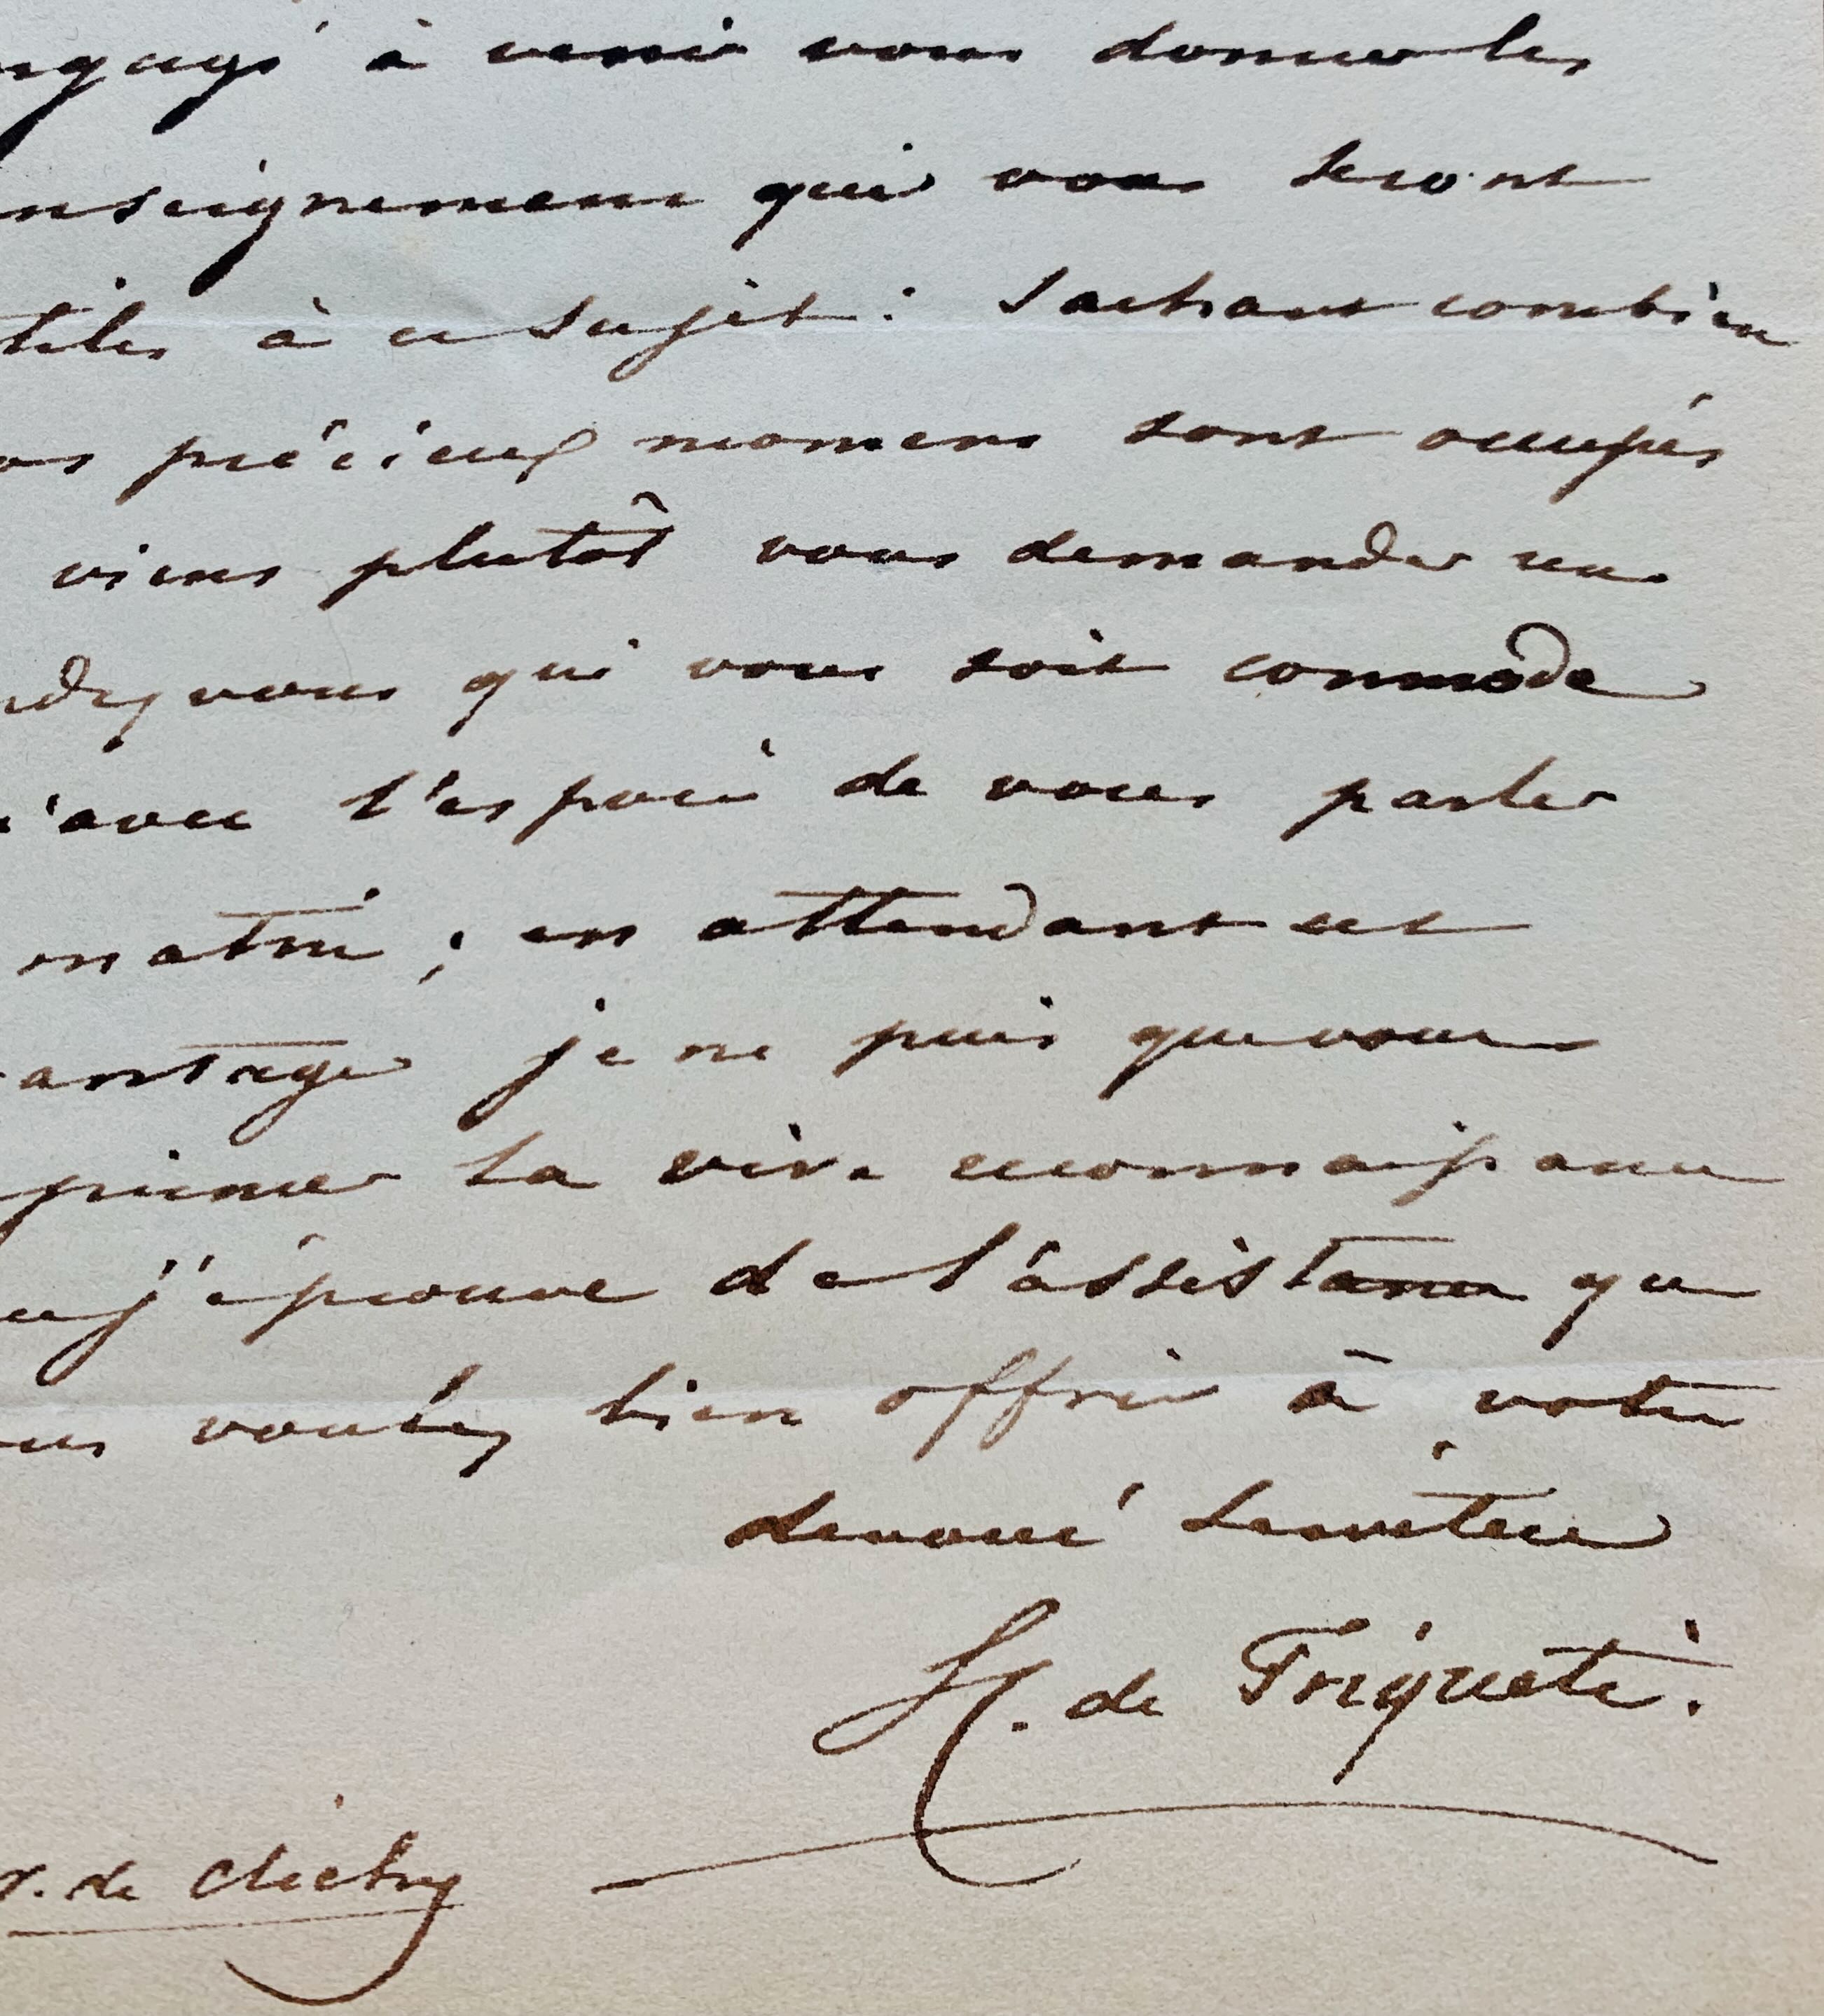 ngagé à venir vous donner les
nseignemens qui vous seront
tiles à ce sujet : Sachant combien
os précieux momens sont occupés
viens plutôt vous demander un
ndez vous qui vous soit commode
u'avec l'espoir de vous parler
matin ; en attendant cet
antage je ne puis que vous
primer la vive reconnaissance
ue j'éprouve de l'assistance que
us voulez bien offrir à votre
devoué Serviteur
H. de Triqueti.
r. de Clichy